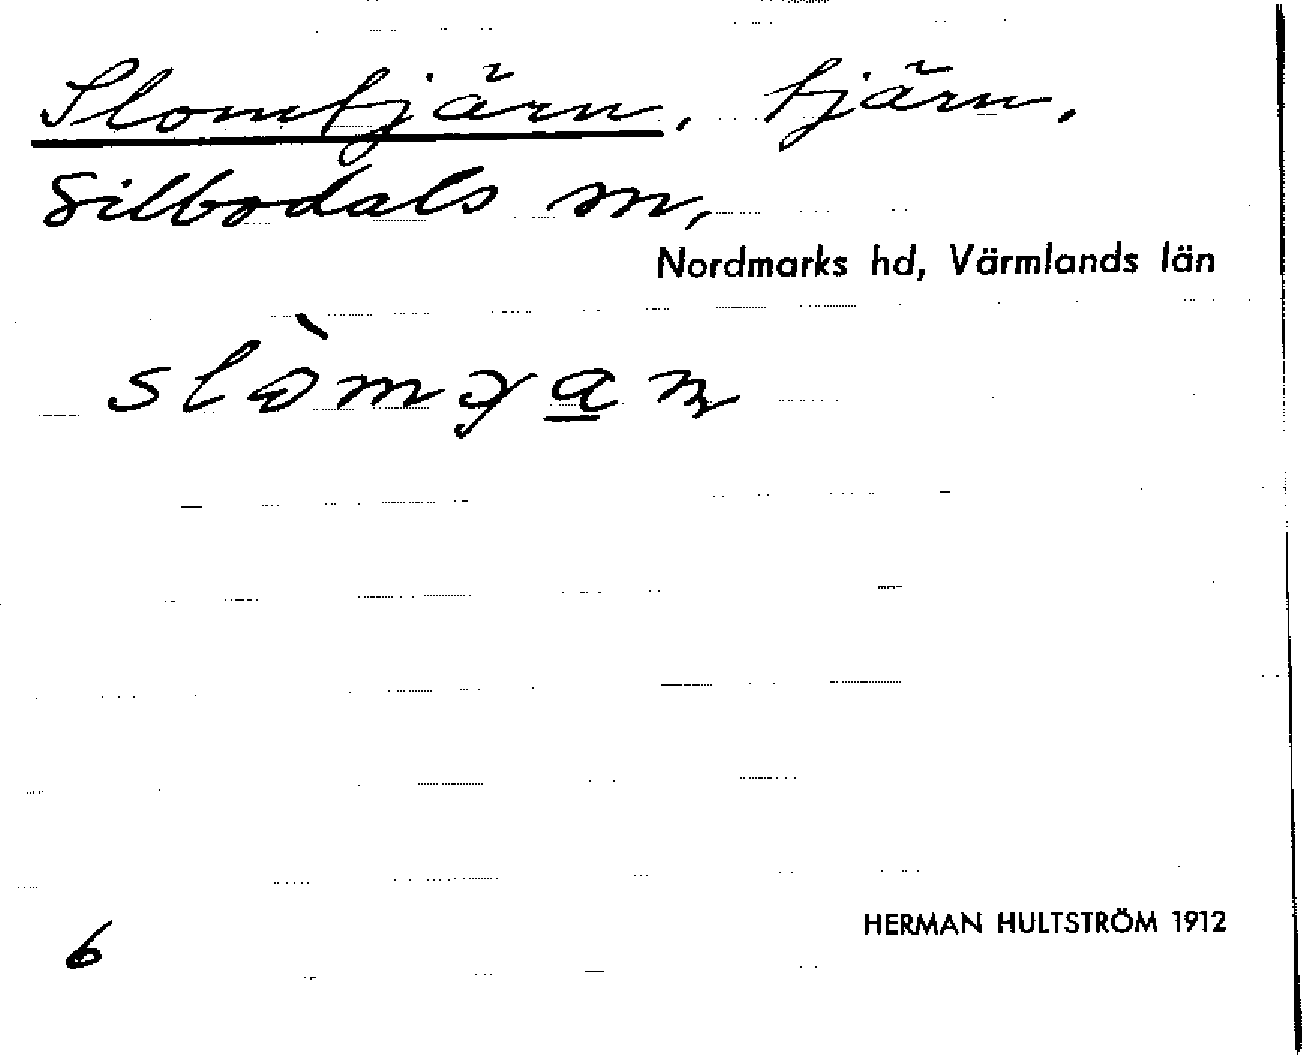 Slomtjärn, tjärn,
Silbodals sn,
Nordmarks hd, Värmlands län
6
HERMAN HULTSTRÖM 1912